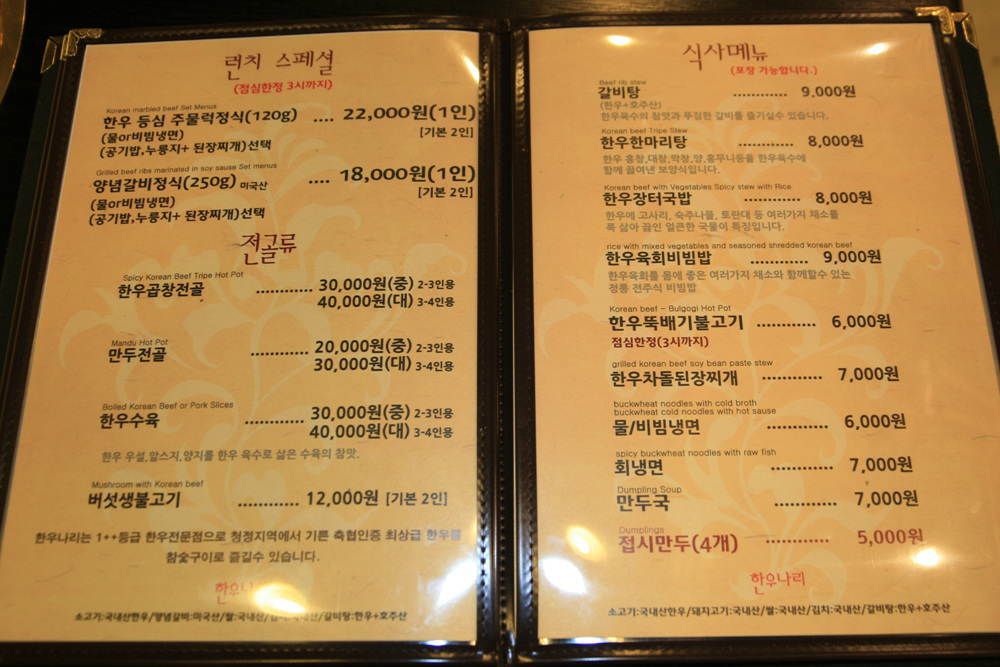 런치 스페셜
(점심한정 3시까지)
Korean marbled beef Set Menus
한우 등심 주물럭정식(120g) .... 22,000원(1인)
(물or비빔냉면) [기본 2인]
(공기밥,누룽지+ 된장찌개)선택
Grilled beef ribs marinated in soy sause Set menus
양념갈비정식(250g) 미국산 .... 18,000원(1인)
(물or비빔냉면) [기본 2인]
(공기밥,누룽지+ 된장찌개)선택
전골류
Spicy Korean Beef Tripe Hot Pot
한우곱창전골 ............ 30,000원(중) 2-3인용
40,000원(대) 3-4인용
Mandu Hot Pot
만두전골 ............ 20,000원(중) 2-3인용
30,000원(대) 3-4인용
Boiled Korean Beef or Pork Slices
한우수육 ............ 30,000원(중) 2-3인용
40,000원(대) 3-4인용
한우 우설,알스지,양지를 한우 육수로 삶은 수육의 참맛.
Mushroom with Korean beef
버섯생불고기 ............ 12,000원 [기본 2인]
한우나리는 1++등급 한우전문점으로 청정지역에서 기른 축협인증 최상급 한우를
참숯구이로 즐길수 있습니다.
한우나리
소고기:국내산한우/양념갈비:미국산/쌀:국내산/김치:국내산/갈비탕:한우+호주산
식사메뉴
(포장 가능합니다.)
Beef rib stew
갈비탕 ............ 9,000원
(한우+호주산)
한우육수의 참맛과 푸짐한 갈비를 즐기실수 있습니다.
Korean beef Tripe Stew
한우한마리탕 ............ 8,000원
한우 홍창,대창,막창,양,홍무니등을 한우육수에
함께 끓여낸 보양식입니다.
Korean beef with Vegetables Spicy stew with Rice
한우장터국밥 ............ 8,000원
한우에 고사리, 숙주나물, 토란대 등 여러가지 채소를
푹 삶아 끓인 얼큰한 국물이 특징입니다.
rice with mixed vegetables and seasoned shredded korean beef
한우육회비빔밥 ............ 9,000원
한우육회를 몸에 좋은 여러가지 채소와 함께할수 있는
정통 전주식 비빔밥
Korean beef - Bulgogi Hot Pot
한우뚝배기불고기 ............ 6,000원
점심한정(3시까지)
grilled korean beef soy bean paste stew
한우차돌된장찌개 ............ 7,000원
buckwheat noodles with cold broth
buckwheat cold noodles with hot sause
물/비빔냉면 ............ 6,000원
spicy buckwheat noodles with raw fish
회냉면 ............ 7,000원
Dumpling Soup
만두국 ............ 7,000원
Dumplings
접시만두(4개) ............ 5,000원
한우나리
소고기:국내산한우/돼지고기:국내산/쌀:국내산/김치:국내산/갈비탕:한우+호주산